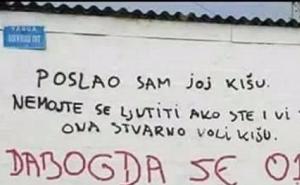 POSLAO SAM joj KIŠU.
NEMOJTE SE LJUTITI AKO STE I VI
ONA STVARNO VOLI KIŠU.
DABOGDA SE